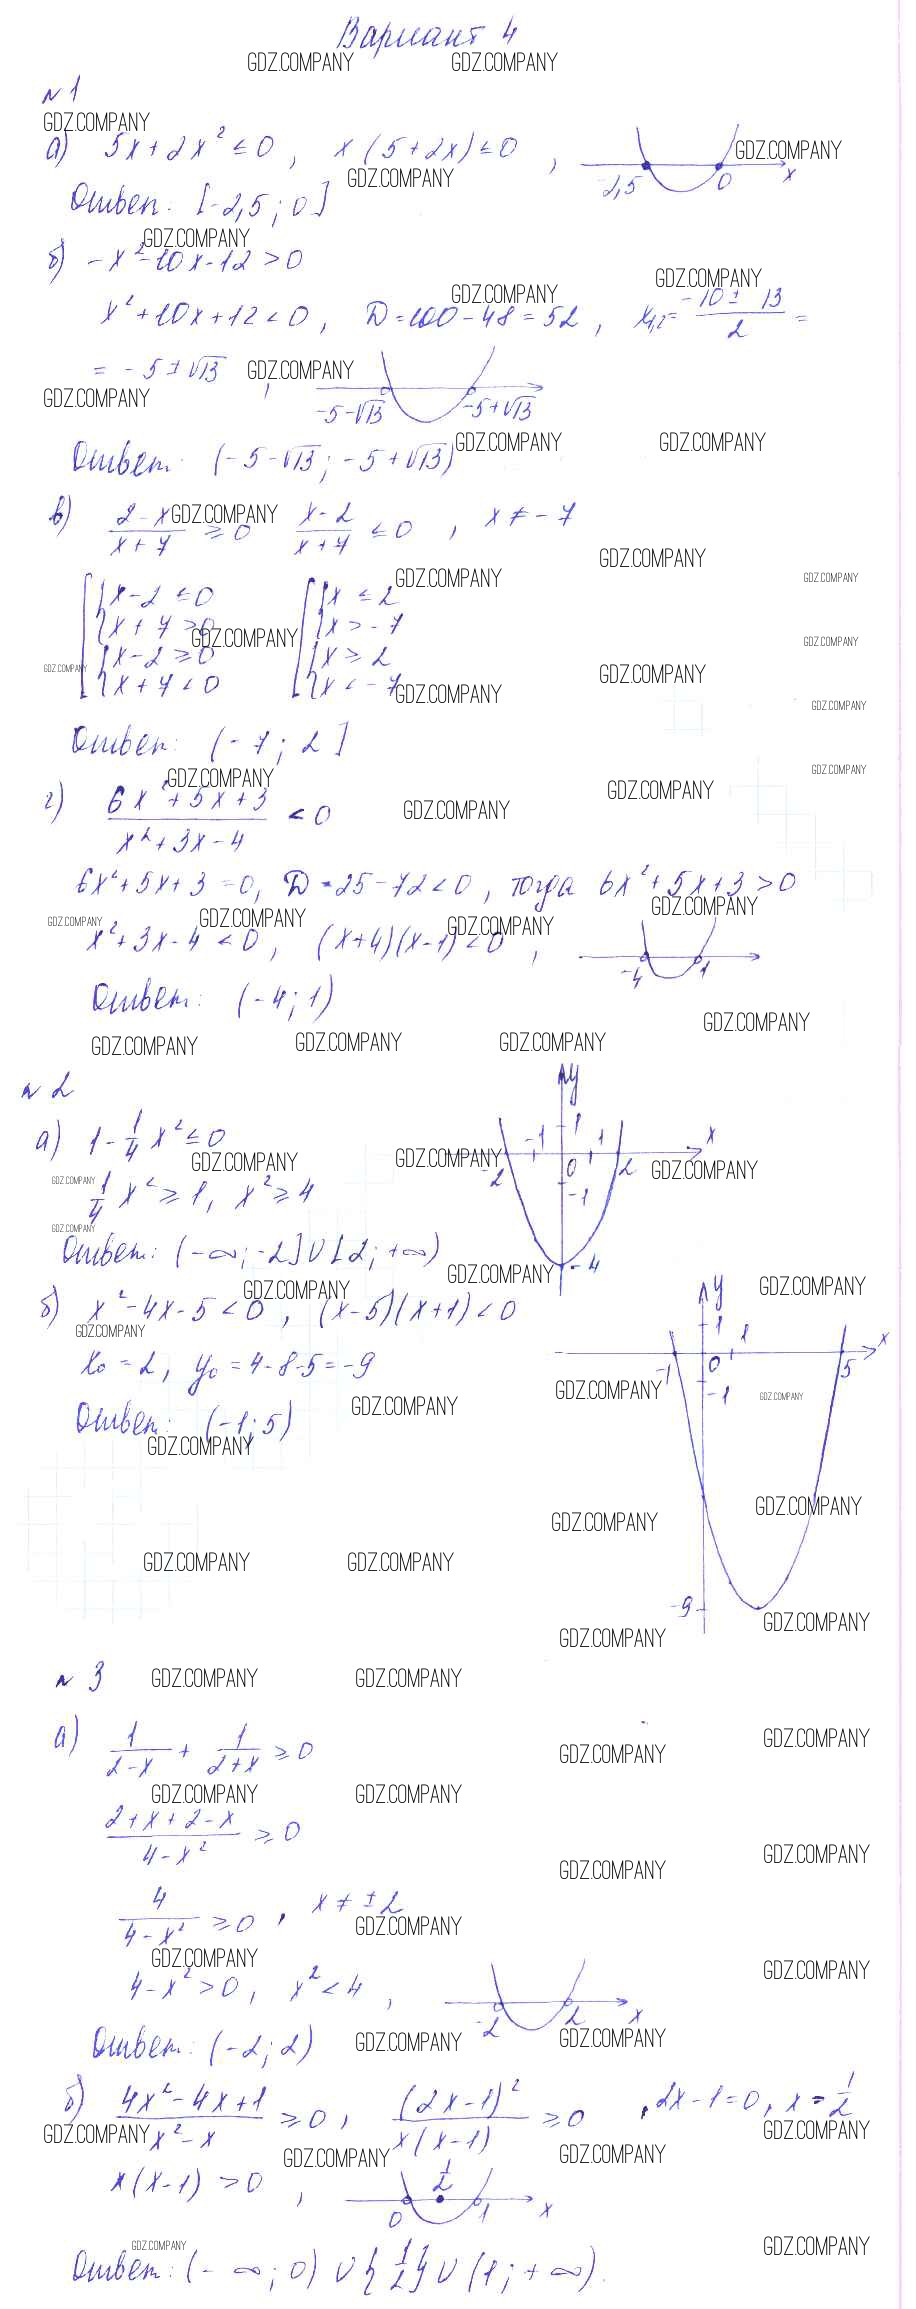 Вариант 4
GDZ.COMPANY GDZ.COMPANY
№1
GDZ.COMPANY
а) 5x + 2x² ≤ 0, x(5 + 2x) ≤ 0, -2,5 0 x GDZ.COMPANY
GDZ.COMPANY
Ответ: [-2,5; 0]
GDZ.COMPANY
б) -x² - 10x - 12 > 0
GDZ.COMPANY GDZ.COMPANY
x² + 10x + 12 < 0, D = 100 - 48 = 52, x₁,₂ = (-10 ± 13)/2 =
= -5 ± √13, GDZ.COMPANY
GDZ.COMPANY -5-√13 -5+√13
Ответ: (-5-√13; -5+√13) GDZ.COMPANY GDZ.COMPANY
в) (2-x)/(x+7) ≥ 0 (x-2)/(x+7) ≤ 0, x ≠ -7
GDZ.COMPANY GDZ.COMPANY
GDZ.COMPANY GDZ.COMPANY
[{x-2 ≤ 0 [{x ≤ 2
{x+7 > 0 {x > -7
GDZ.COMPANY GDZ.COMPANY
{x-2 ≥ 0 {x ≥ 2
GDZ.COMPANY GDZ.COMPANY
{x+7 < 0 {x < -7
GDZ.COMPANY GDZ.COMPANY
Ответ: (-7; 2]
GDZ.COMPANY GDZ.COMPANY
г) (6x² + 5x + 3)/(x² + 3x - 4) < 0
GDZ.COMPANY GDZ.COMPANY
6x² + 5x + 3 = 0, D = 25 - 72 < 0, тогда 6x² + 5x + 3 > 0
GDZ.COMPANY GDZ.COMPANY GDZ.COMPANY GDZ.COMPANY
x² + 3x - 4 < 0, (x+4)(x-1) < 0, -4 1
Ответ: (-4; 1)
GDZ.COMPANY
GDZ.COMPANY GDZ.COMPANY GDZ.COMPANY
№2
а) 1 - 1/4 x² ≤ 0
y 1 -1 1 x 2 0 2 -1 -4
GDZ.COMPANY GDZ.COMPANY GDZ.COMPANY
GDZ.COMPANY
1/4 x² ≥ 1, x² ≥ 4
GDZ.COMPANY
Ответ: (-∞; -2] ∪ [2; +∞)
GDZ.COMPANY GDZ.COMPANY GDZ.COMPANY
б) x² - 4x - 5 < 0, (x-5)(x+1) < 0
GDZ.COMPANY
y 1 1 x -1 0 5 -1 -9
x₀ = 2, y₀ = 4-8-5 = -9
GDZ.COMPANY GDZ.COMPANY GDZ.COMPANY
Ответ: (-1; 5)
GDZ.COMPANY
GDZ.COMPANY GDZ.COMPANY
GDZ.COMPANY GDZ.COMPANY
GDZ.COMPANY GDZ.COMPANY
№3 GDZ.COMPANY GDZ.COMPANY
а) 1/(2-x) + 1/(2+x) ≥ 0
GDZ.COMPANY GDZ.COMPANY
GDZ.COMPANY GDZ.COMPANY
(2+x+2-x)/(4-x²) ≥ 0
GDZ.COMPANY GDZ.COMPANY
4/(4-x²) ≥ 0, x ≠ ±2
GDZ.COMPANY
GDZ.COMPANY GDZ.COMPANY
4-x² > 0, x² < 4, -2 2 x
Ответ: (-2; 2) GDZ.COMPANY GDZ.COMPANY
б) (4x² - 4x + 1)/(x² - x) ≥ 0, (2x-1)²/(x(x-1)) ≥ 0, 2x-1 = 0, x = 1/2
GDZ.COMPANY GDZ.COMPANY
GDZ.COMPANY GDZ.COMPANY
x(x-1) > 0, 0 1/2 1 x
GDZ.COMPANY GDZ.COMPANY
Ответ: (-∞; 0) ∪ {1/2} ∪ (1; +∞).